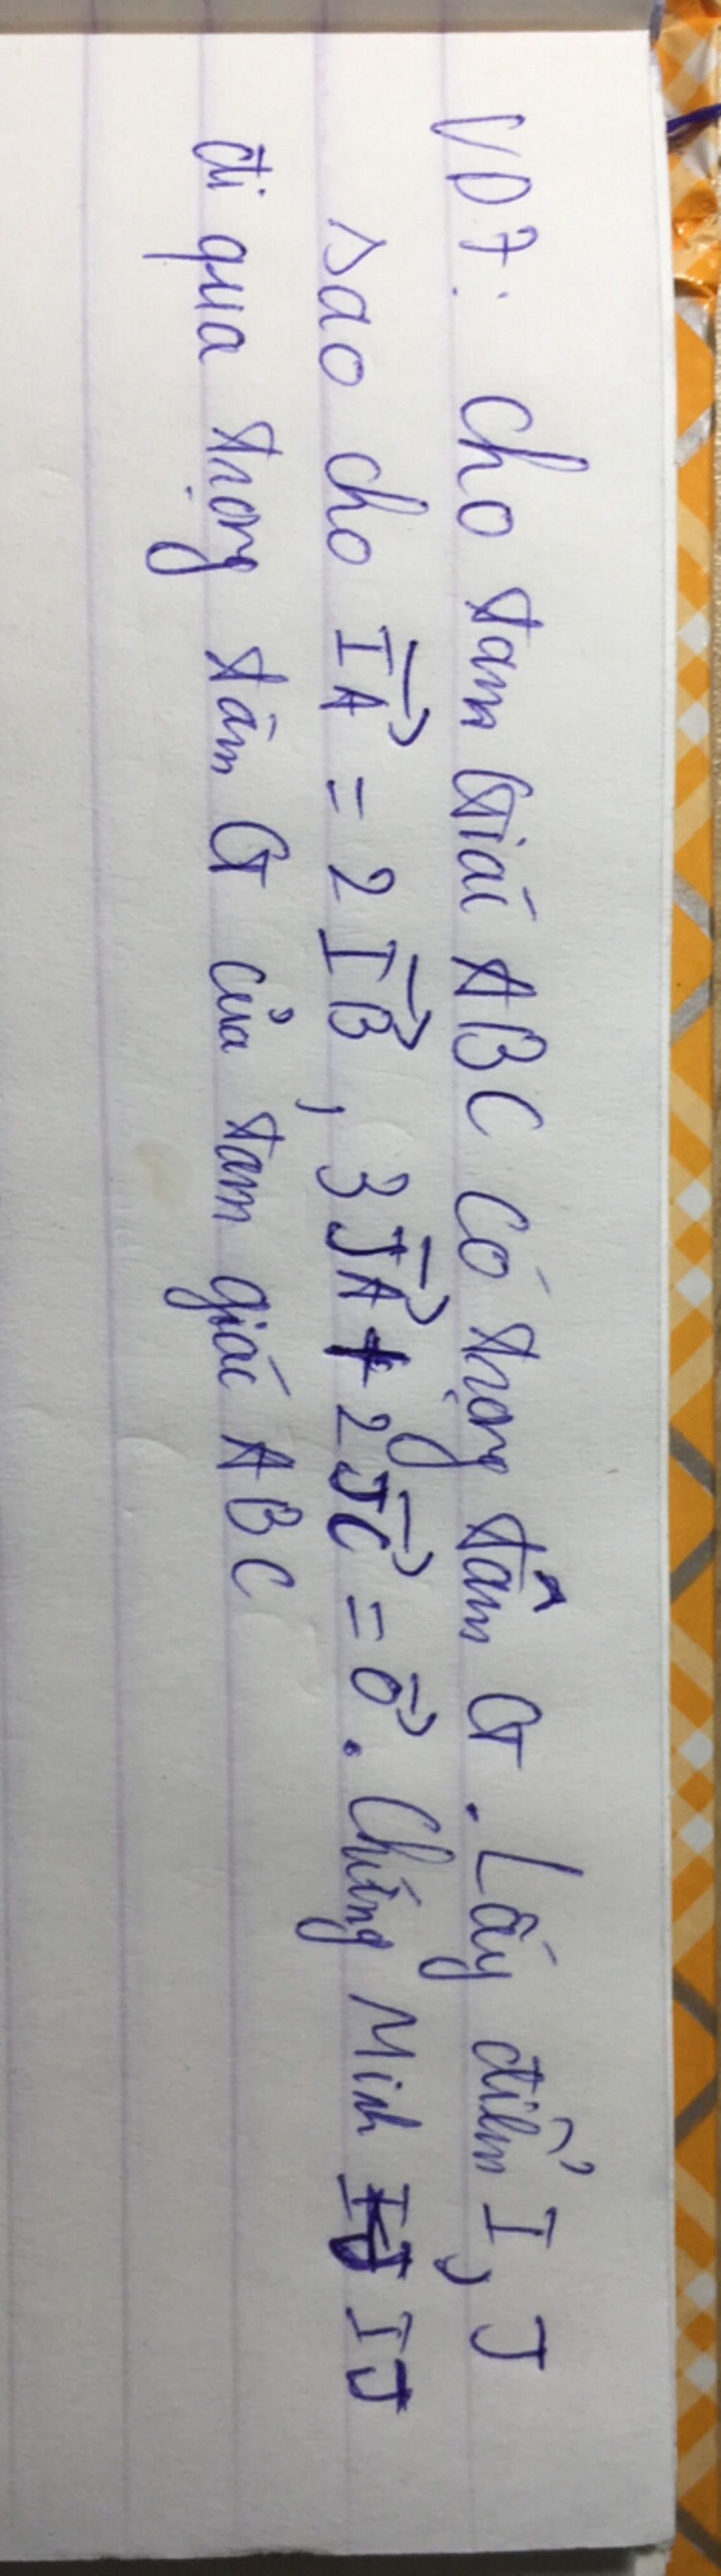 VD7: Cho tam Giác ABC có trọng tâm G. Lấy điểm I, J
sao cho IA⃗ = 2 IB⃗, 3 JA⃗ + 2 JC⃗ = 0⃗. Chứng Minh IJ
đi qua trọng tâm G của tam giác ABC